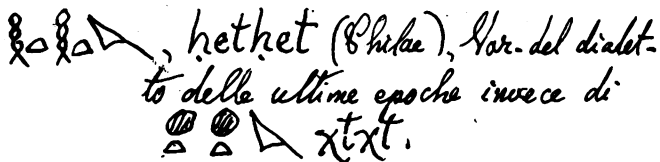 𓎛𓏏𓎛𓏏𓈎, ḥetḥet (Philae), Var. del dialet-
to delle ultime epoche invece di
𓐍𓏏 𓐍𓏏 𓈎 χtχt.